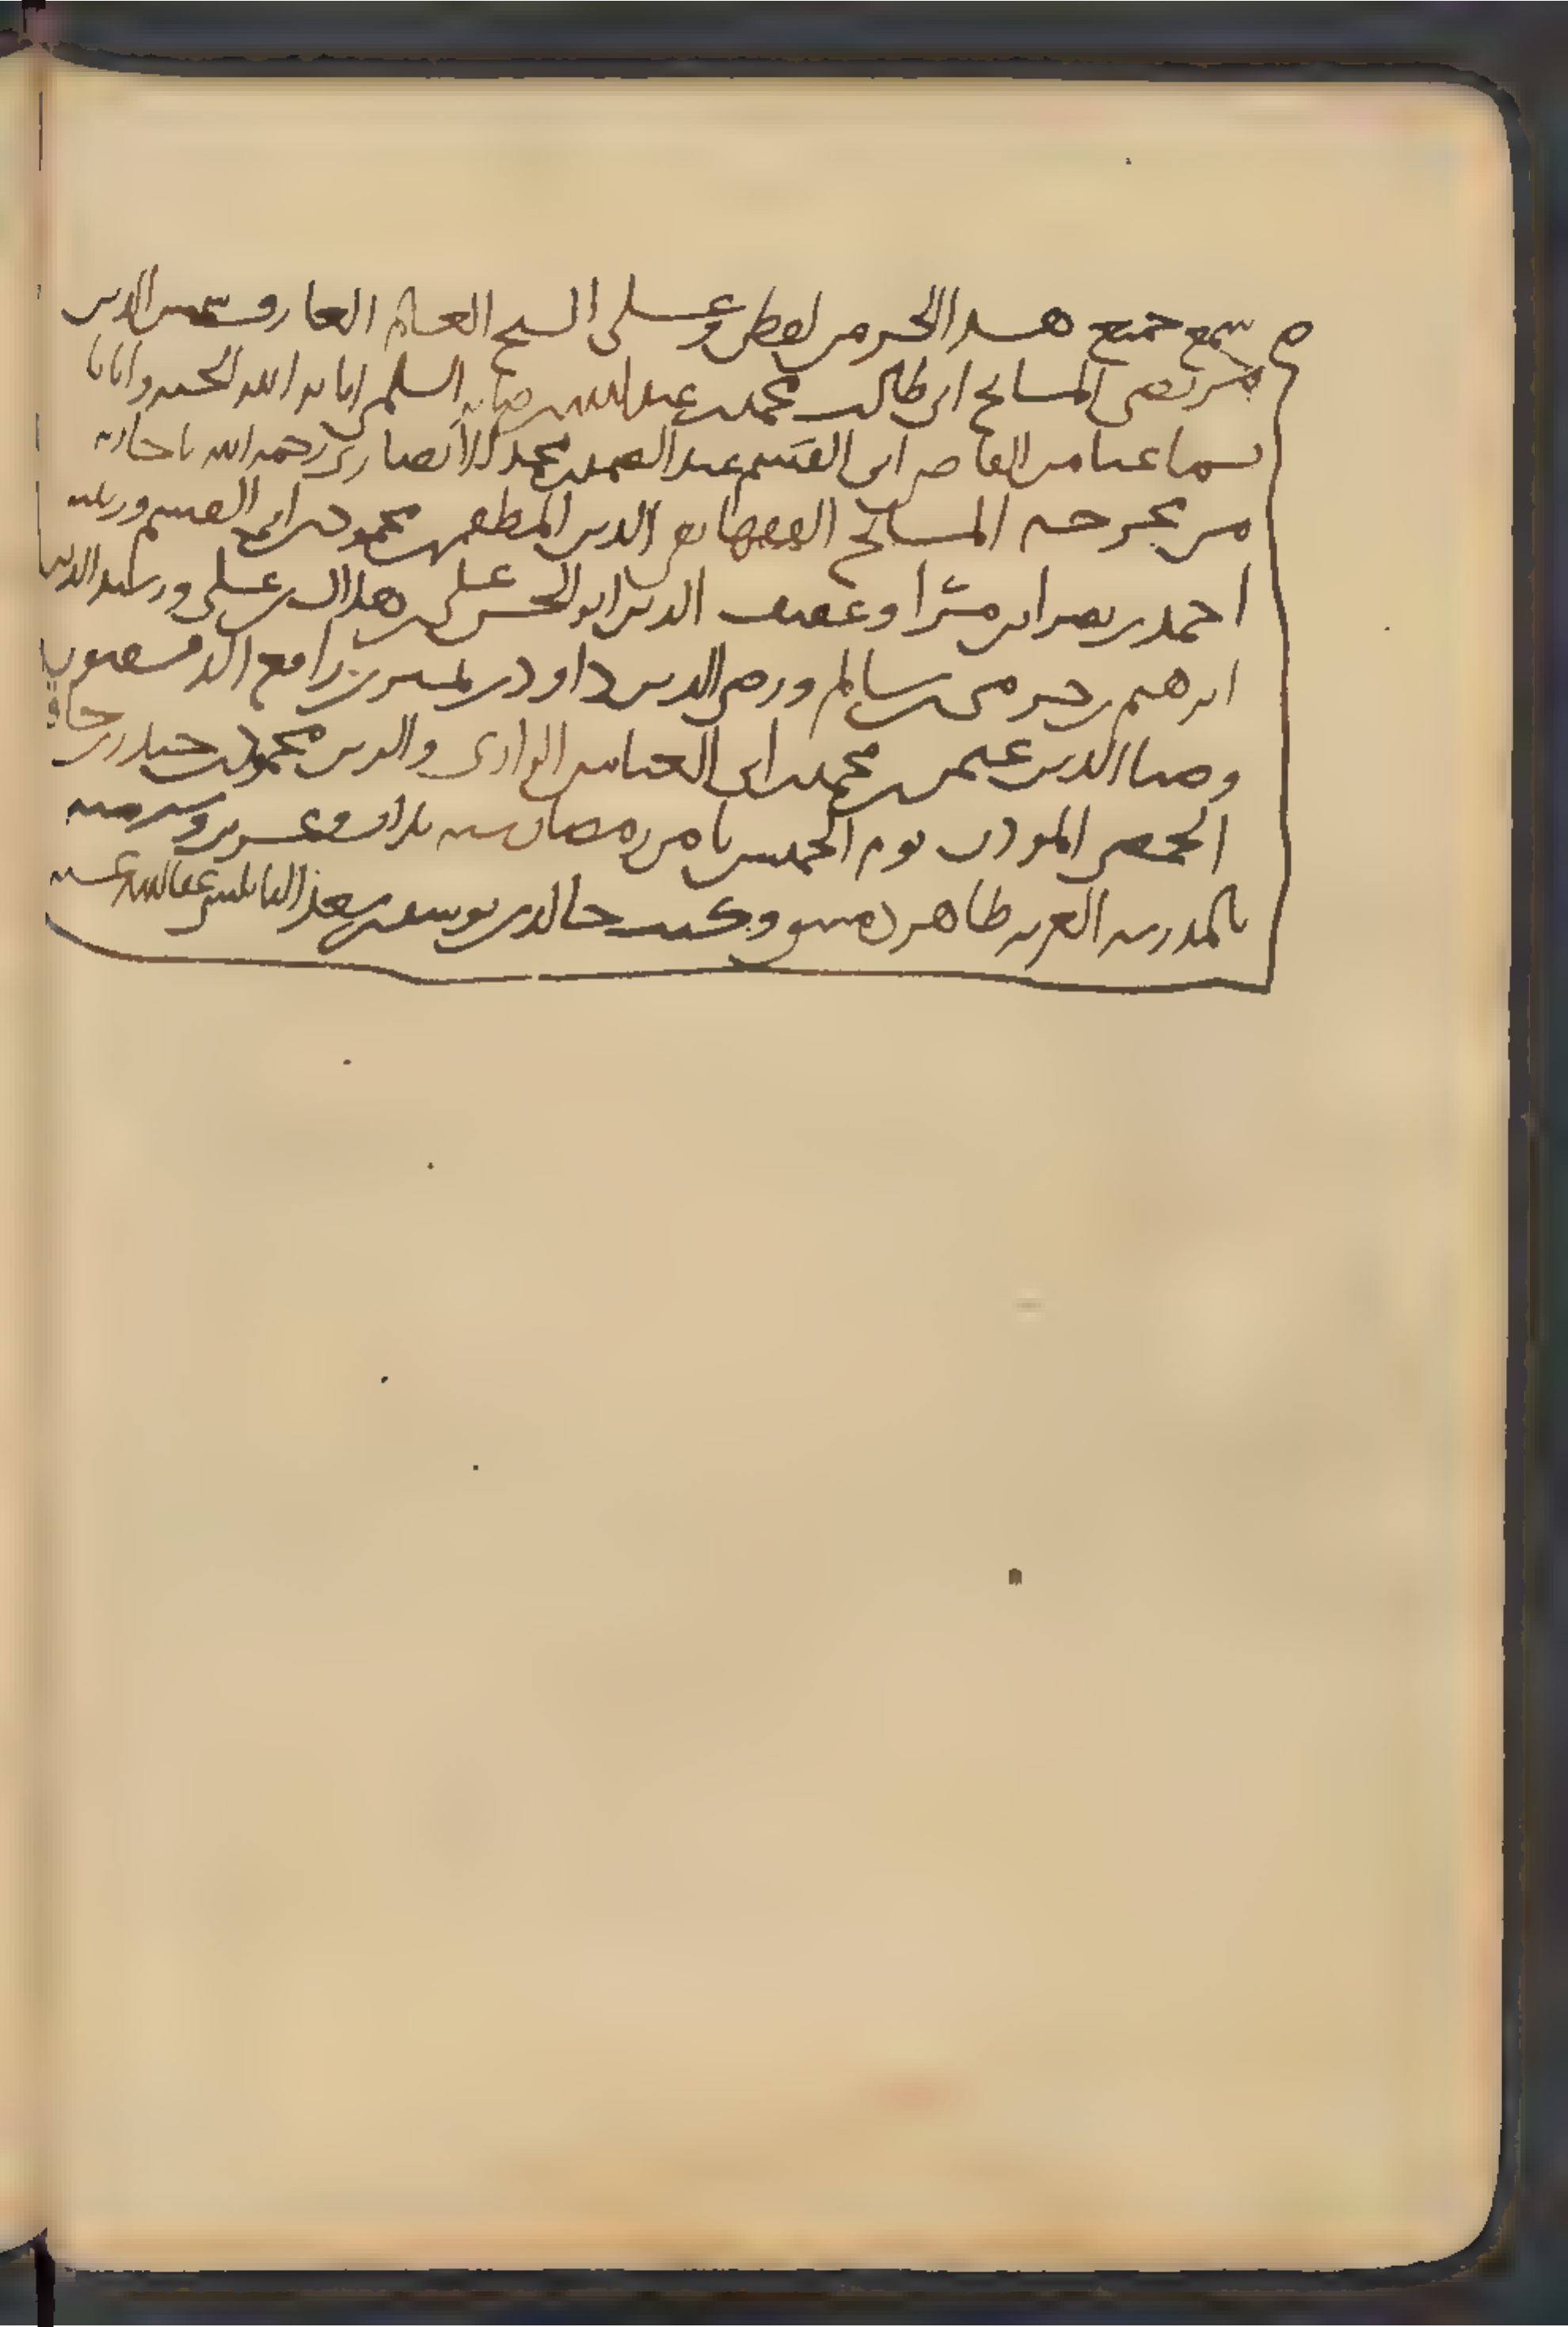 سمع جميع هذا الجزء من لفظ وعلى الشيخ العالم العارف شمس الدين
مرتضى المشايخ ابي طالب محمد بن عبد الله بن صابر السلمي اثابه الله الجنة وايانا
بسماعنا من القاضي ابي القسم عبد الصمد بن محمد الانصاري رحمه الله باجازته
من مخرجه المشايخ الفقها الدين المظفر بن محمود بن ابي القسم
احمد بن نصر ابن وعفيف الدين ابو الحسن علي بن هلال بن علي ورشيد الدين
ابرهيم بن سالم ورضي الدين داود بن رافع الدمشقيون
وضيا الدين عمر بن محمد بن ابي العباس والدين محمود بن حيدر
الحمصي المؤدب يوم الخميس ثامن رمضان سنة ثلاث وعشرين وستمئة
بالمدرسة العزية ظاهر دمشق وكتب خالد بن يوسف بن سعد النابلسي عفا الله عنه